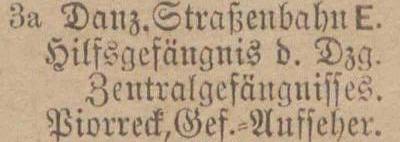 3a Danz. Straßenbahn E.
Hilfsgefängnis d. Dzg.
Zentralgefängnisses.
Piorreck, Gef.-Aufseher.